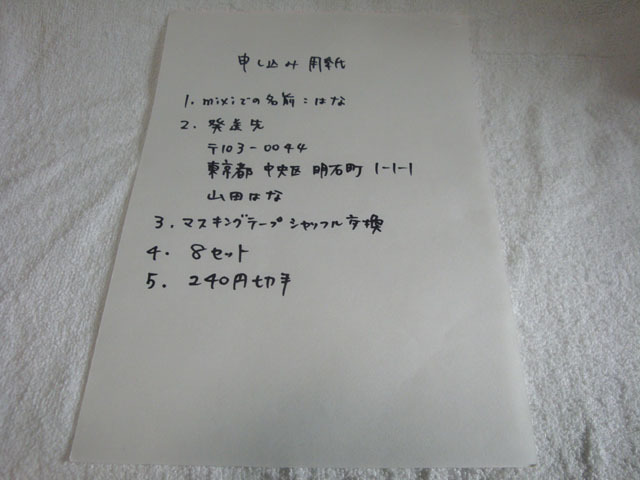 申し込み用紙
1. mixiでの名前：はな
2. 発送先
〒103-0044
東京都 中央区 明石町 1-1-1
山田はな
3. マスキングテープシャッフル交換
4. 8セット
5. 240円切手